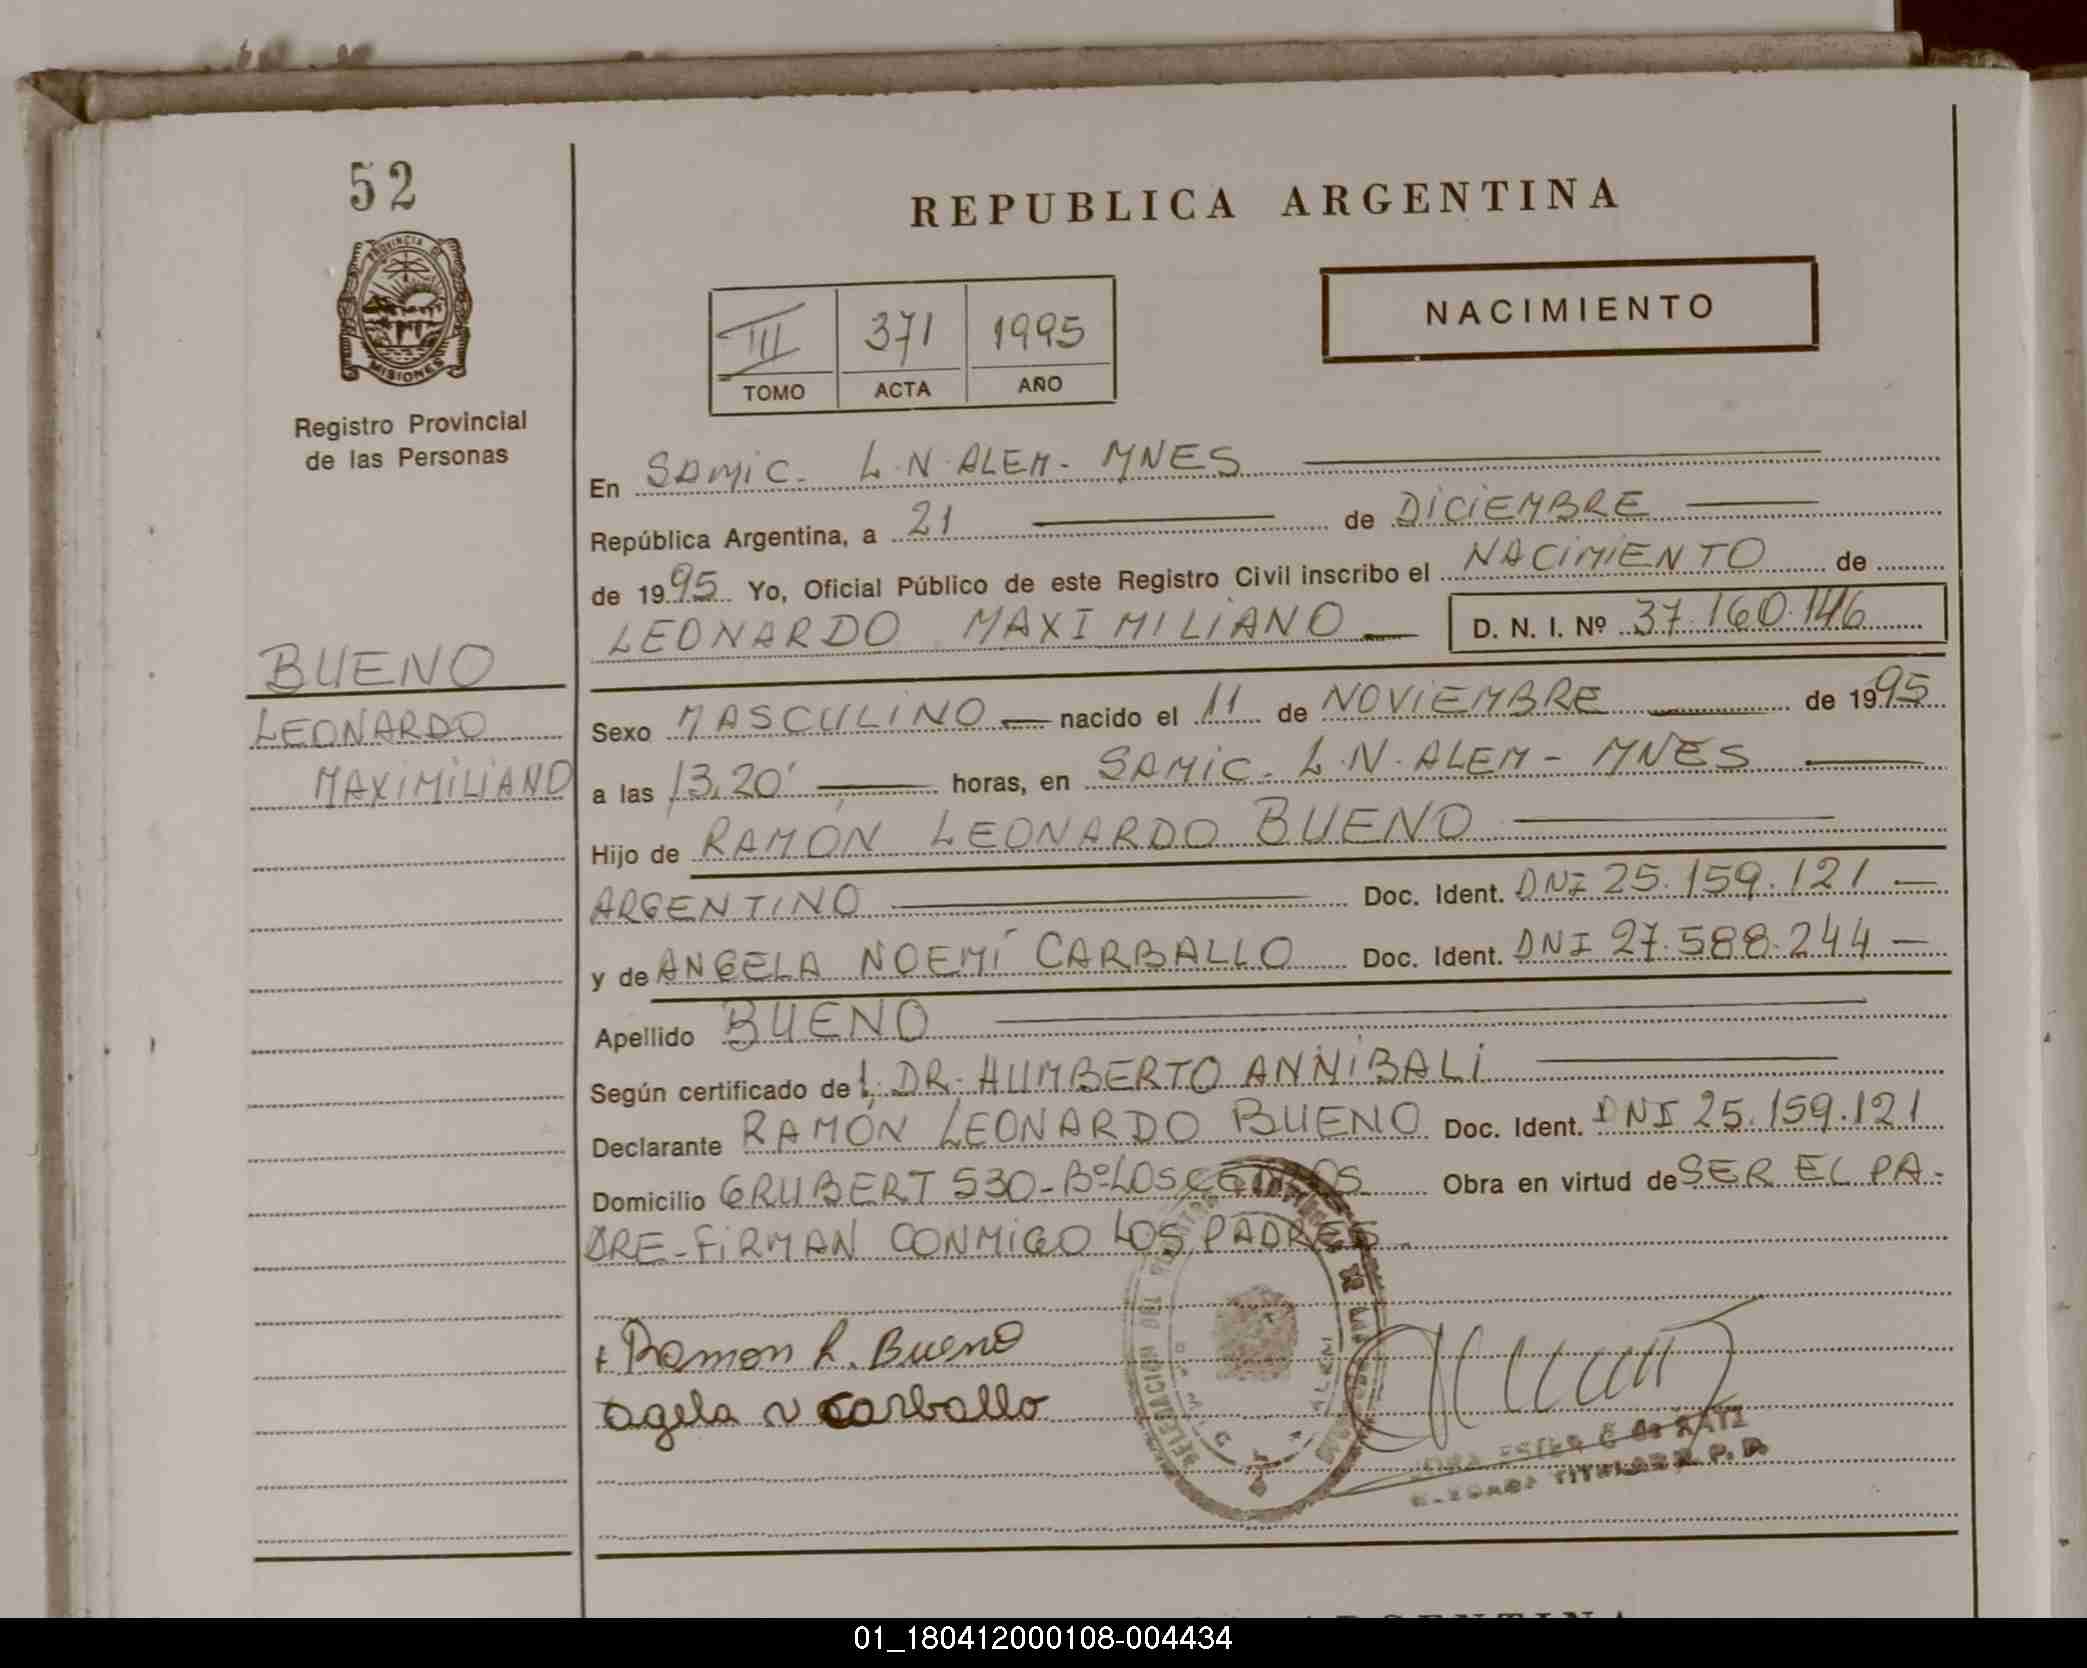 52
REPUBLICA ARGENTINA
PROVINCIA DE
MISIONES
Registro Provincial
de las Personas
III 371 1995
TOMO ACTA AÑO
NACIMIENTO
En SAMIC. L.N. ALEM - MNES
República Argentina, a 21 de DICIEMBRE
de 1995 Yo, Oficial Público de este Registro Civil inscribo el NACIMIENTO de
LEONARDO MAXIMILIANO D. N. I. Nº 37.160.146
BUENO
LEONARDO
MAXIMILIANO
Sexo MASCULINO nacido el 11 de NOVIEMBRE de 1995
a las 13,20' horas, en SAMIC. L.N. ALEM - MNES
Hijo de RAMÓN LEONARDO BUENO
ARGENTINO Doc. Ident. DNI 25.159.121
y de ANGELA NOEMÍ CARBALLO Doc. Ident. DNI 27.588.244
Apellido BUENO
Según certificado del DR. HUMBERTO ANNIBALI
Declarante RAMÓN LEONARDO BUENO Doc. Ident. DNI 25.159.121
Domicilio GRUBERT 530 - Bº LOS CEDROS Obra en virtud de SER EL PA-
DRE - FIRMAN CONMIGO LOS PADRES
Ramon L. Bueno
agela n carballo
DELEGACION DEL
ESTER C de RATZ
TITULAR R. P. P.
ARGENTINA
01_180412000108-004434